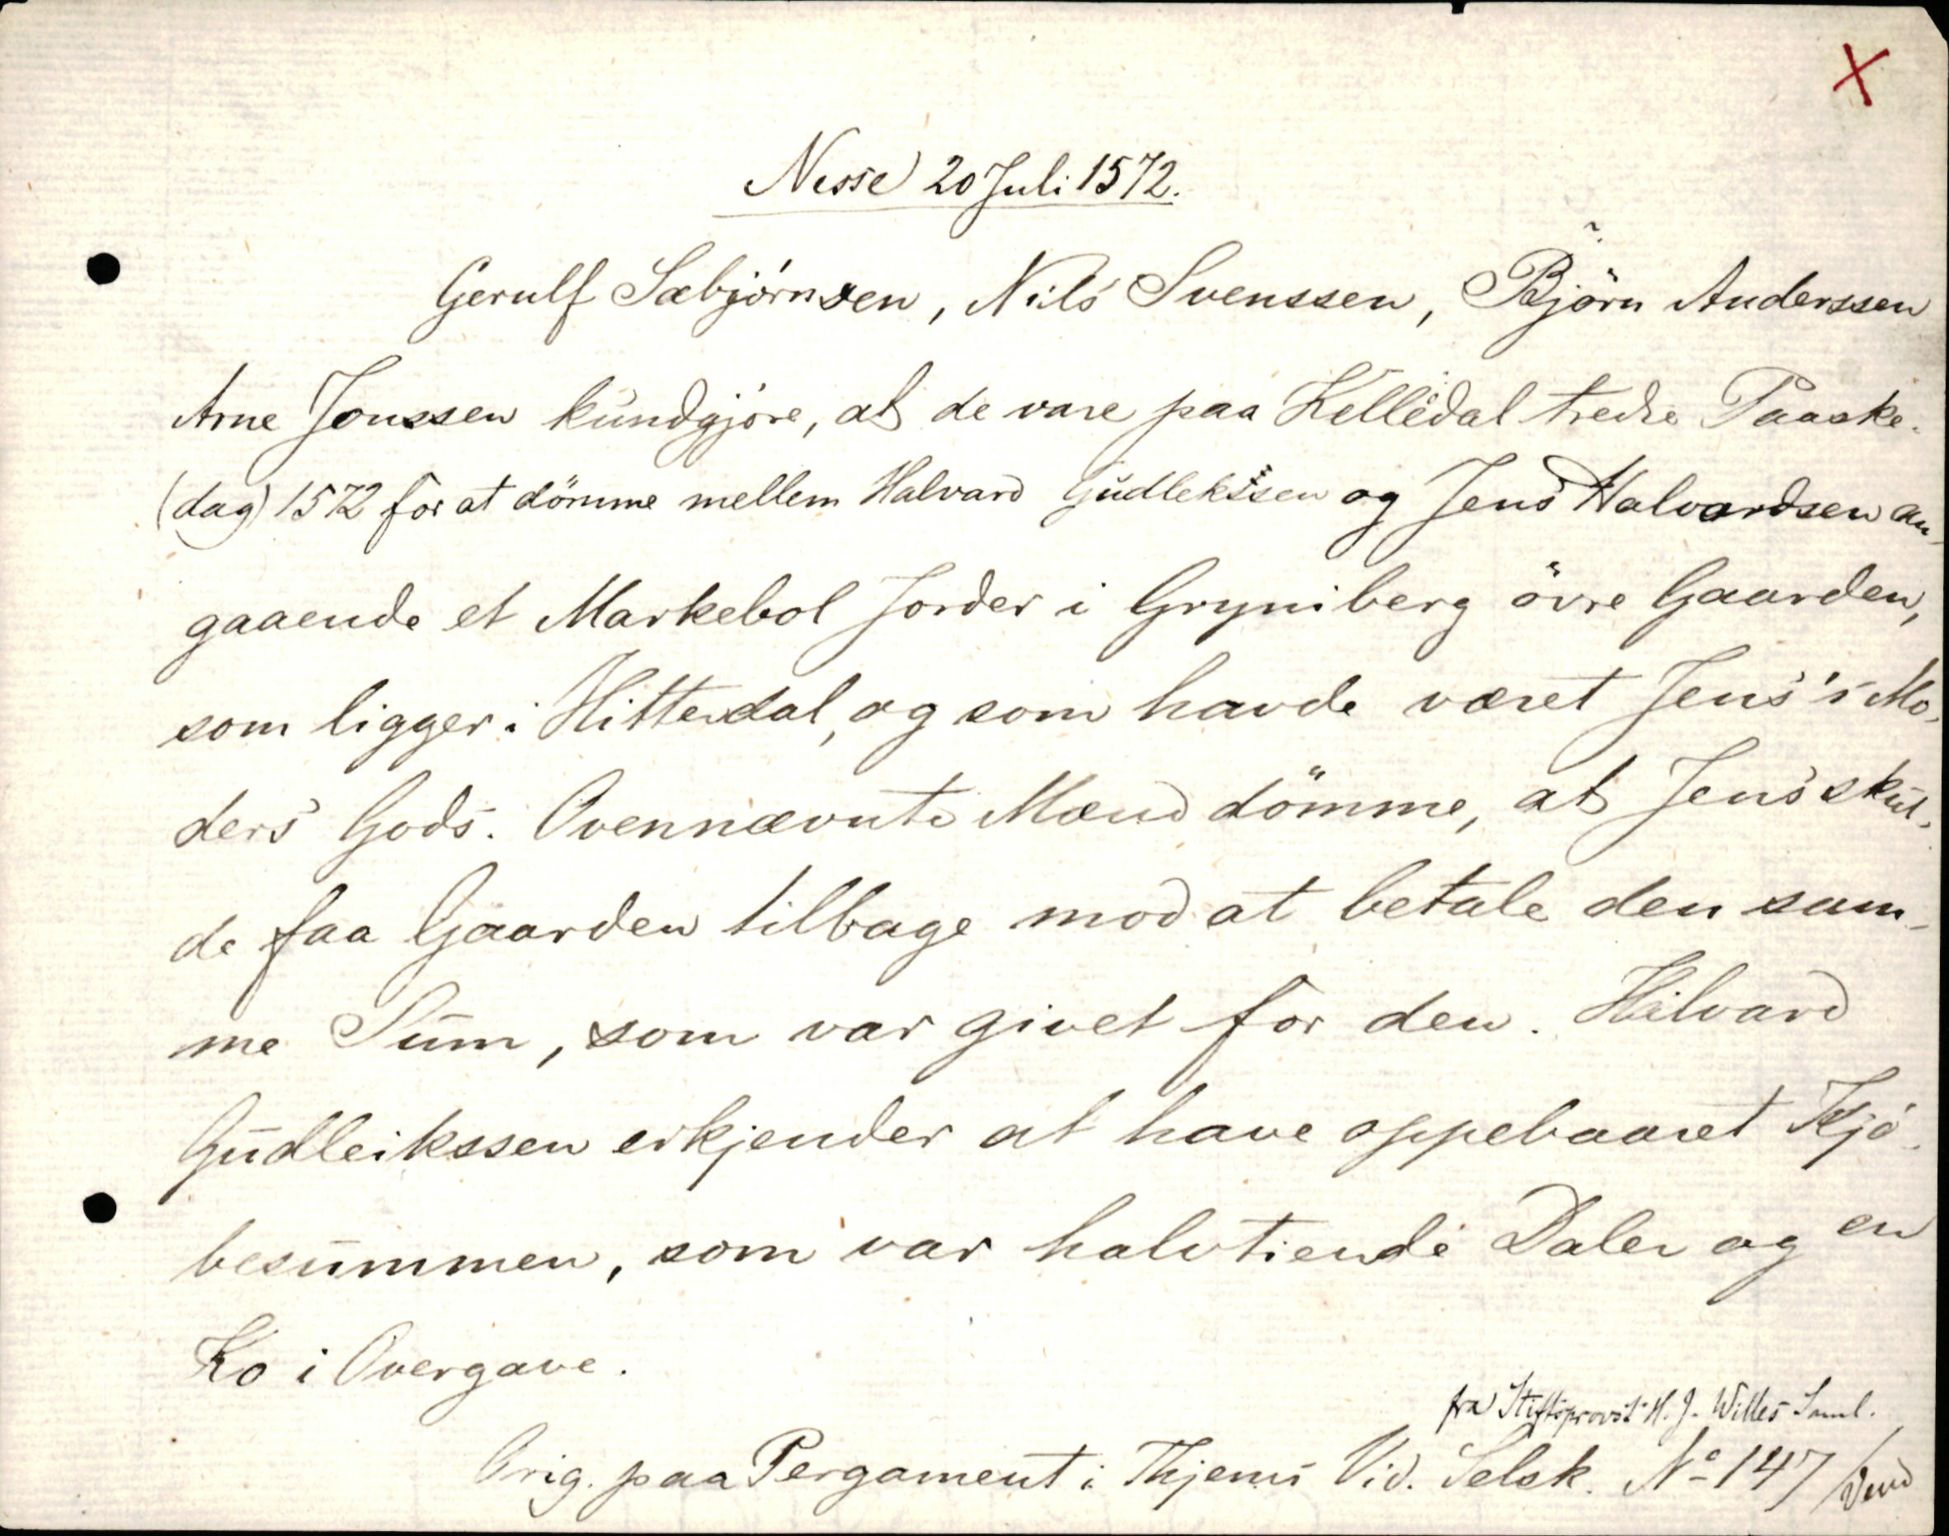 X
Nesse 20 Juli 1572.
Gerulf Sæbjørnsen, Nils Svenssen, Bjørn Anderssen
Arne Jonssen kundgjøre, at de vare paa Kelledal tredie Paaske-
(dag) 1572 for at dömme mellem Halvard Gudlekssen og Jens Halvardsen an-
gaaende et Markebol Jorder i Gryniberg övre Gaarden,
som ligger i Hitterdal, og som havde været Jens's Mo-
ders Gods. Ovennævnte Mænd dömme, at Jens skul-
de faa Gaarden tilbage mod at betale den sam-
me Sum, som var givet for den. Halvard
Gudleikssen erkjender at have oppebaaret Kjö-
besummen, som var halvtiende Daler og en
Ko i Overgave.
fra Stiftsprovst H. J. Willes Saml.
Orig. paa Pergament i Thjems Vid. Selsk. No 147 / Vend